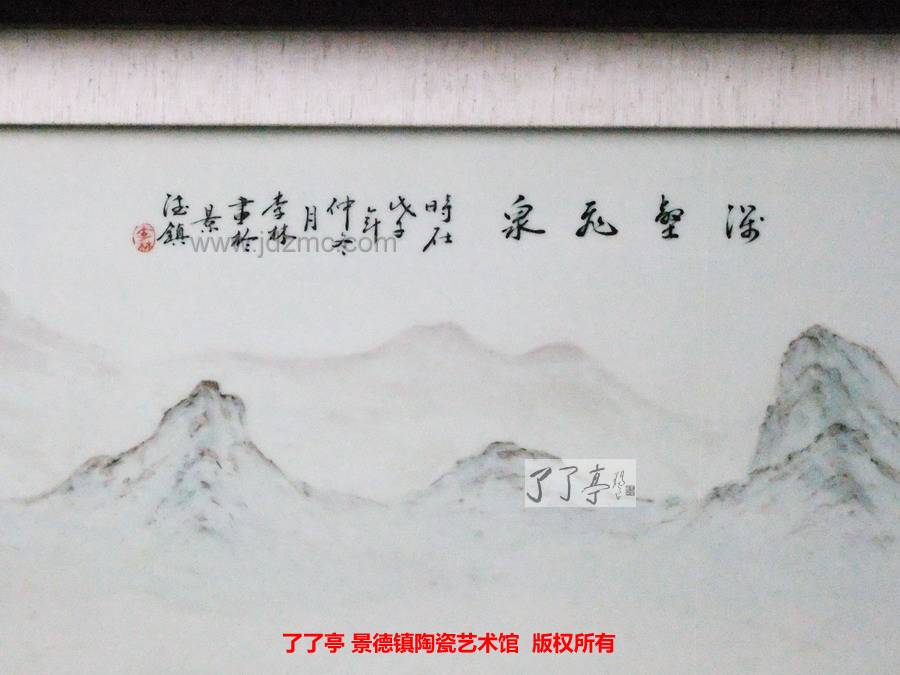 深壑飛泉
時在
戊子
年
仲冬
月
李林
畫於
景
德鎮
www.jdzmc.com
了了亭
了了亭 景德镇陶瓷艺术馆 版权所有